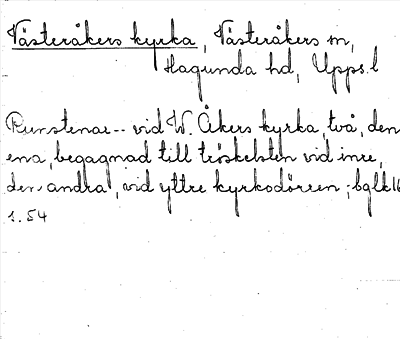 Västeråkers kyrka, Västeråkers sn,
Hagunda hd, Upps. l
Runstenar -- vid W. Åkers kyrka, två, den
ena, begagnad till tröskelsten vid inre,
den andra, vid yttre kyrkodörren; bglk 16
1.54